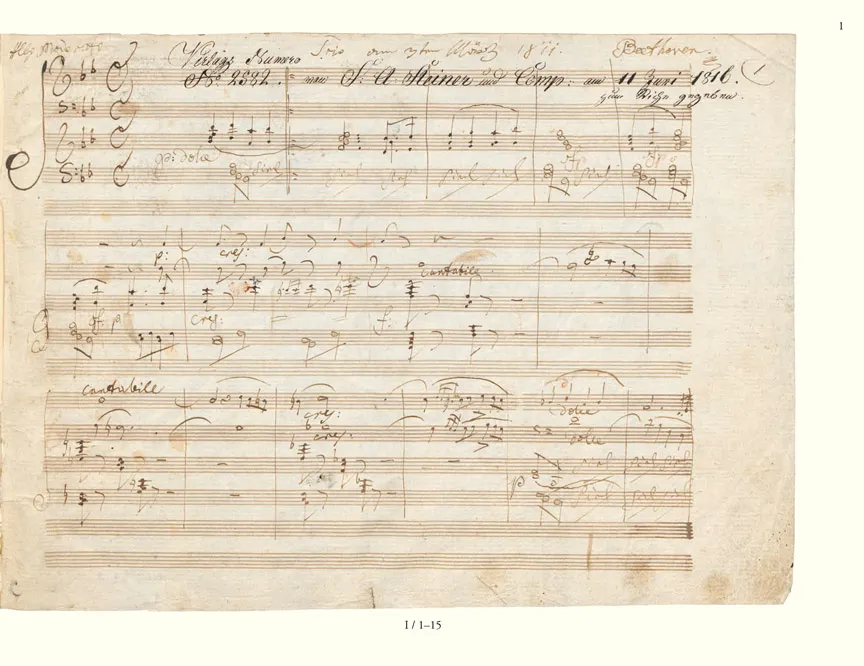 1
Allo Moderato Trio am 3ten März 1811. Beethoven.
Verlags Numero
No 2582. von S: A Steiner und Comp: am 11 Juni 1816. 1
gegeben.
dolce
p: cres:
cantabile
sf p cres: f:
cantabile
cres: dolce
cres: dolce
p
I / 1–15